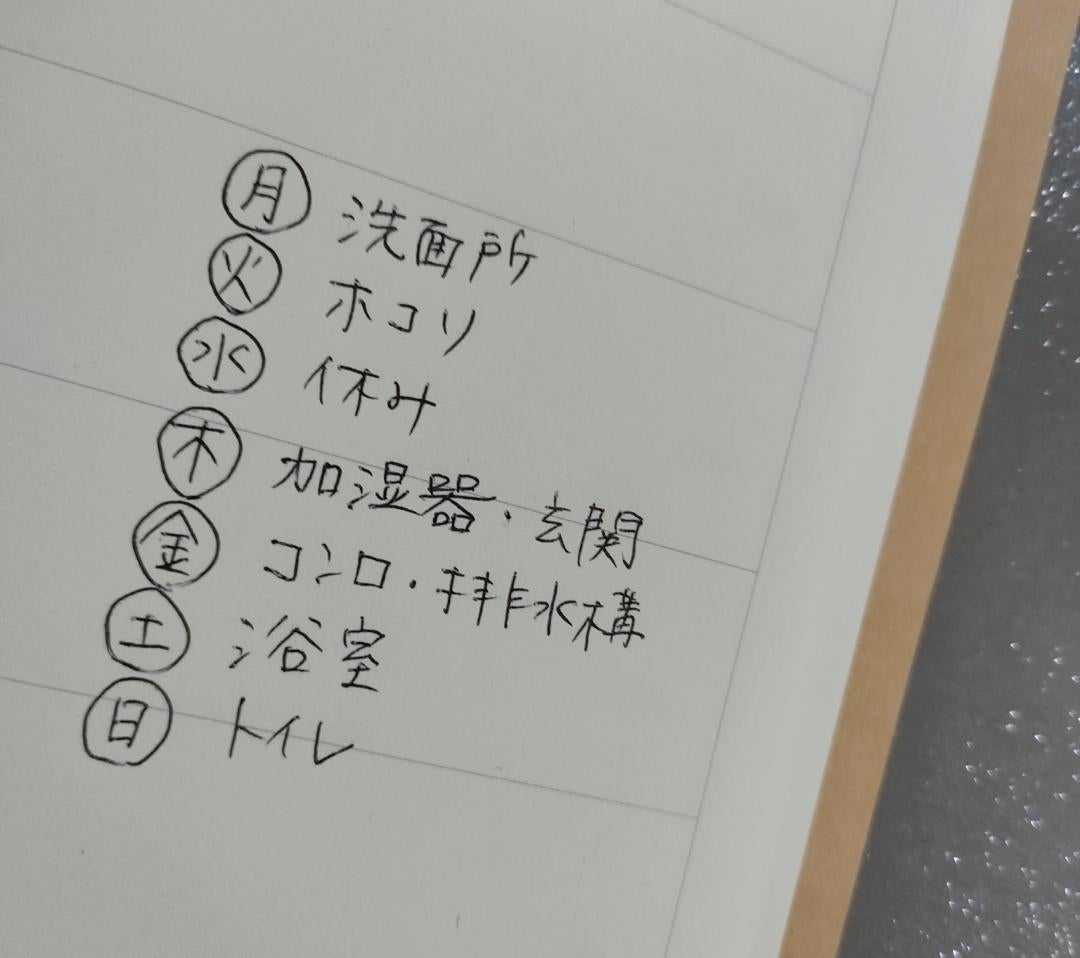 月 洗面所
火 ホコリ
水 休み
木 加湿器・玄関
金 コンロ・排水構
土 浴室
日 トイレ